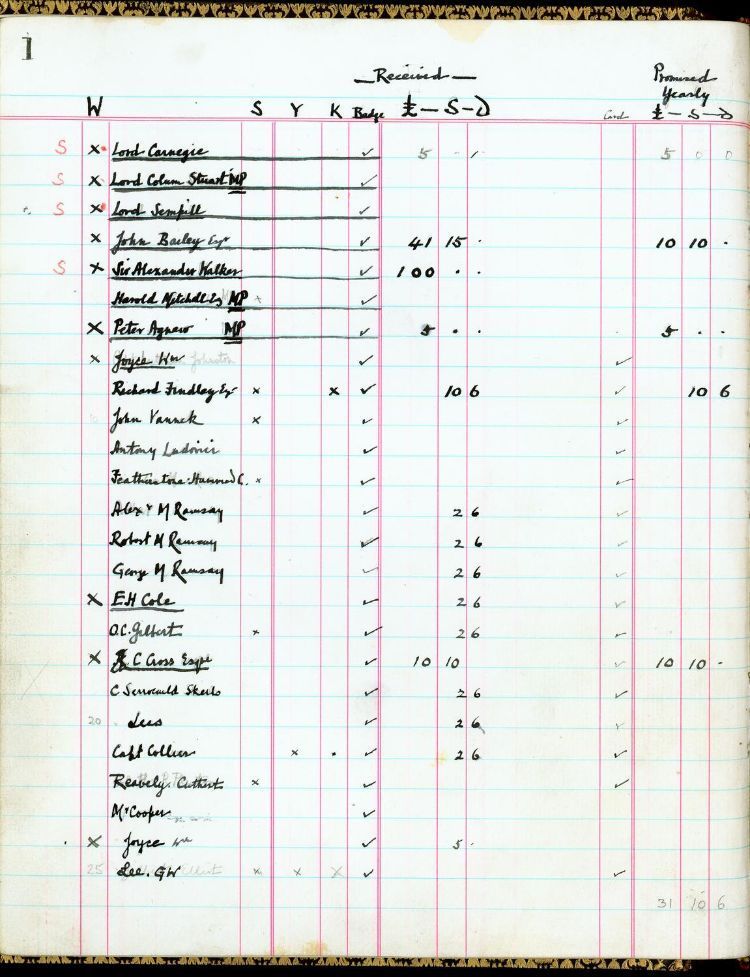 1
Received
Promised
Yearly
W S Y K Badge £ — S — D Card £ — S — D
S x Lord Carnegie ✓ 5 · 1 5 0 0
S x Lord Colum Stuart MP ✓
S x Lord Sempill ✓
x John Bailey Esqr ✓ 41 15 · 10 10 ·
S x Sir Alexander Walker ✓ 100 · ·
Harold Mitchell Esq MP x ✓
x Peter Agnew MP ✓ 5 · · 5 · ·
x Joyce Wm Johnston ✓ ✓
Richard Findlay Esqr x x ✓ 10 6 ✓ 10 6
John Vanneck x ✓ ✓
Antony Ludovici ✓ ✓
Featherstone-Hammond C. x ✓ ✓
Alexr M Ramsay ✓ 2 6 ✓
Robert M Ramsay ✓ 2 6 ✓
George M Ramsay ✓ 2 6 ✓
x E H Cole ✓ 2 6 ✓
O.C. Gilbert x ✓ 2 6 ✓
x C Cross Esqre ✓ 10 10 ✓ 10 10 ·
C Serrocould Skeels ✓ 2 6 ✓
20 Lees ✓ 2 6 ✓
Capt Collier x · ✓ 2 6 ✓
Reavely. Cuthbert x ✓ ✓
Mr Cooper ✓
x Joyce Wm ✓ 5 ·
25 Lee. GW x x x ✓ ✓
31 10 6